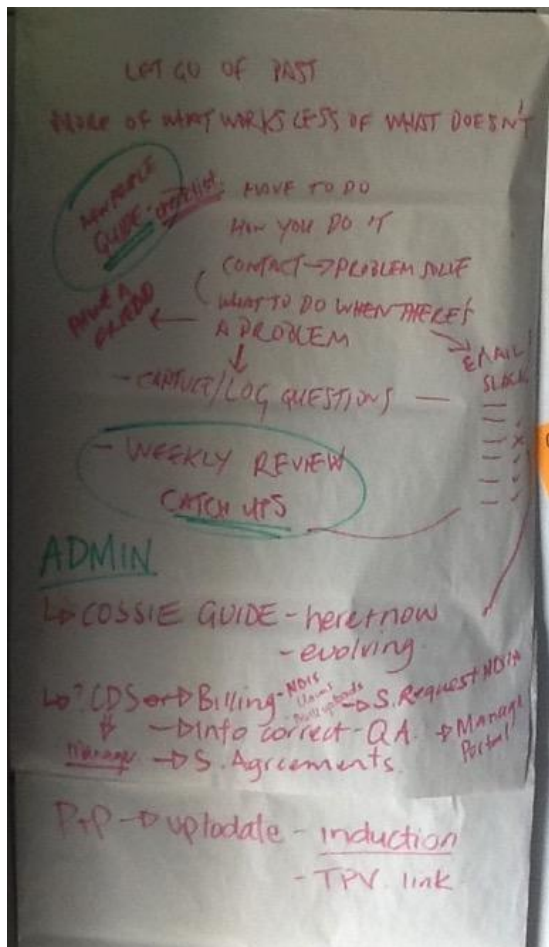 LET GO OF PAST
MORE OF WHAT WORKS LESS OF WHAT DOESN'T
NEW PEOPLE
GUIDE - checklist
HAVE TO DO
HOW YOU DO IT
CONTACT → PROBLEM SOLVE
WHAT TO DO WHEN THERE'S
A PROBLEM
HAVE A
EMAIL/
SLACK
- CAPTURE/LOG QUESTIONS -
- WEEKLY REVIEW
CATCH UPS
ADMIN
↳ COSSIE GUIDE - here+now
- evolving
↳ ? CDS or → Billing - NDIS
Claims
Bulk uploads
→ S. Request NDIA
→ Info correct - Q.A. → Manage
Portal
Manage → S. Agreements
P+P → uptodate - induction
- TPV. link